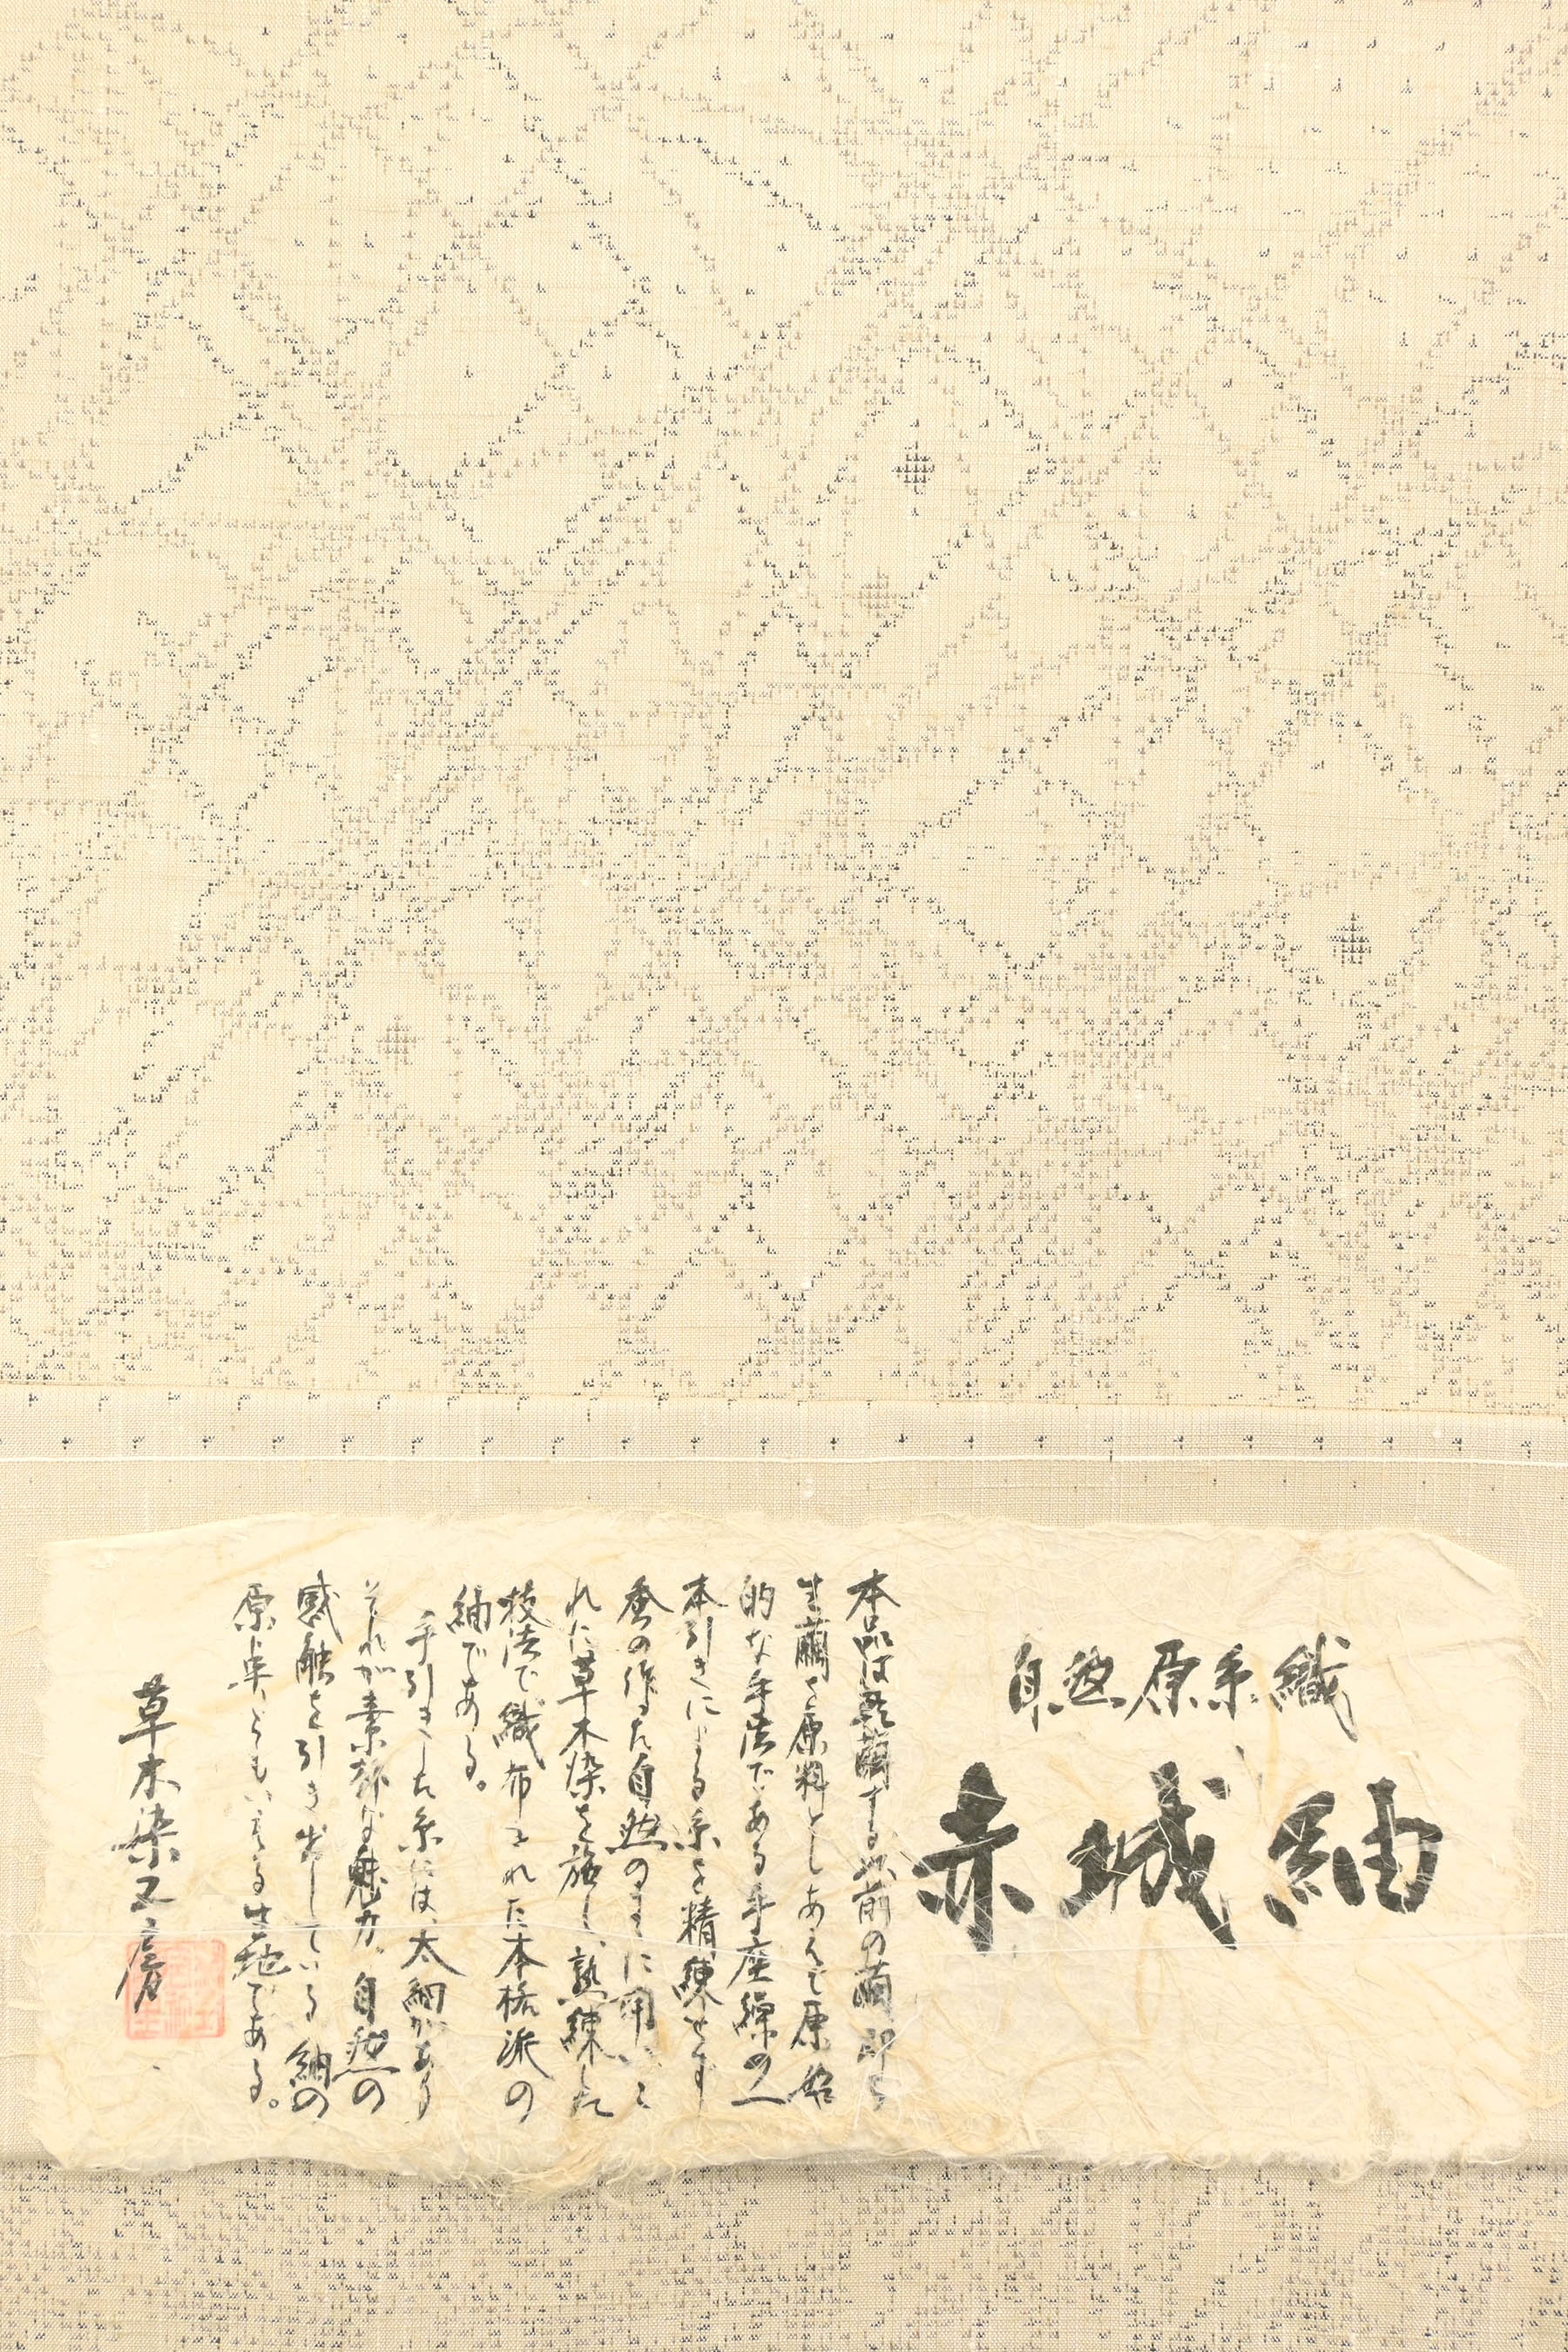 自然原糸織
赤城紬
本品は発蛾する以前の繭即ち
生繭を原料としあえて原始
的な手法である手座繰の一
本引きによる糸を精練せず
蚕の作った自然のままに用いこ
れに草木染を施し、熟練した
技法で織布された本格派の
紬である。
手引きした糸には、太細があり
それが素朴な魅力。自然の
感触を引き出している紬の
原点ともいえる生地である。
草木染又